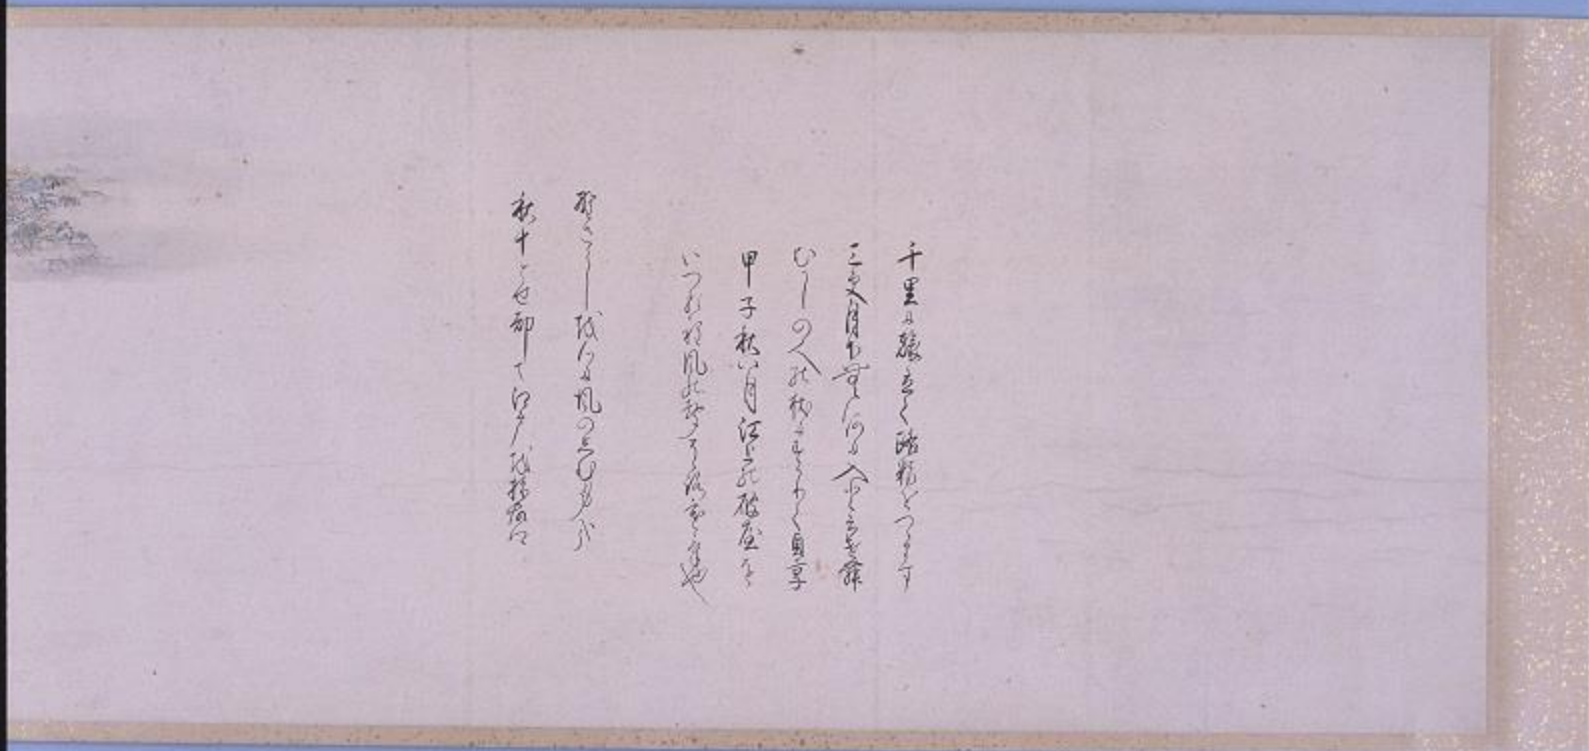 千里に旅立て路粮をつゝます
三更月下無何に入と云けむ
むかしの人の杖にすかりて貞享
甲子秋八月江上の破屋を
いつる程風の聲そゝろ寒け也
野さらしを心に風のしむ身かな
秋十とせ却て江戸を指故郷